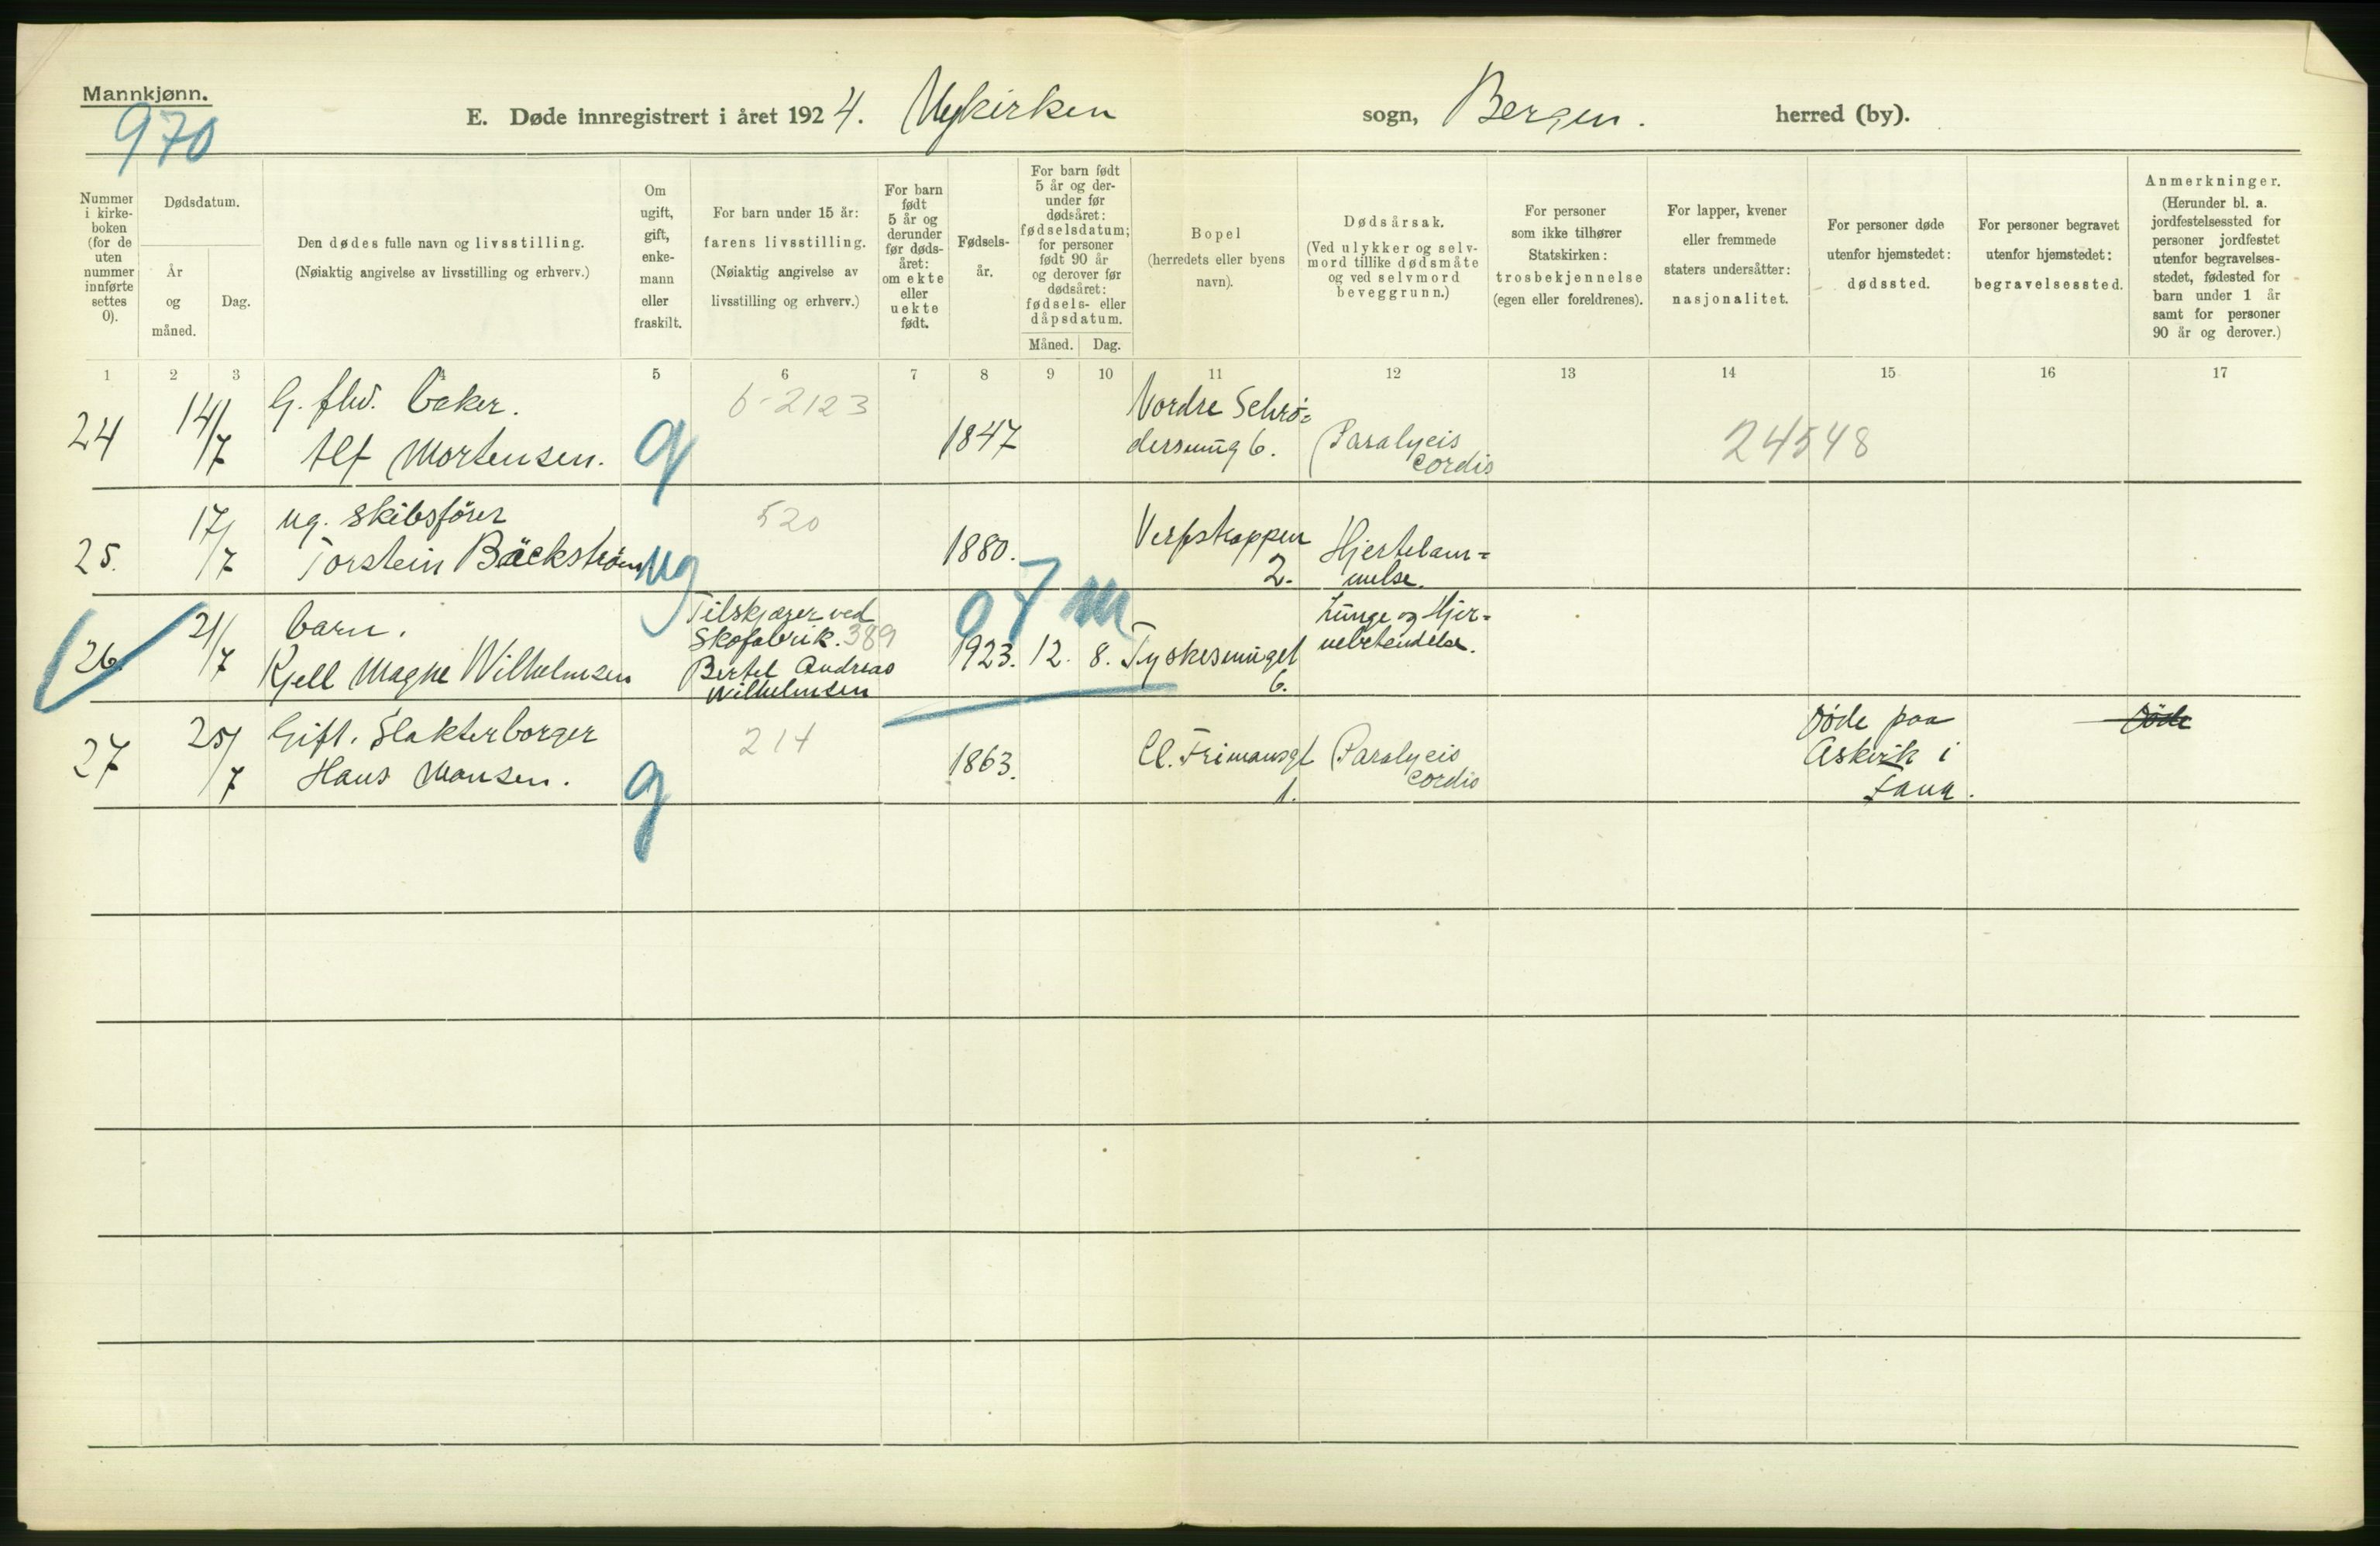 Mannkjønn.
970
E. Døde innregistrert i året 1924. Nykirken sogn, Bergen. herred (by).
Nummer
i kirke-
boken
(for de
uten
nummer
innførte
settes
0).
Dødsdatum.
År
og
måned.
Dag.
Den dødes fulle navn og livsstilling.
(Nøiaktig angivelse av livsstilling og erhverv.)
Om
ugift,
gift,
enke-
mann
eller
fraskilt.
For barn under 15 år:
farens livsstilling.
(Nøiaktig angivelse av
livsstilling og erhverv.)
For barn
født
5 år og
derunder
før døds-
året:
om ekte
eller
uekte
født.
Fødsels-
år.
For barn født
5 år og der-
under før
dødsåret:
fødselsdatum;
for personer
født 90 år
og derover før
dødsåret:
fødsels- eller
dåpsdatum.
Måned. Dag.
Bopel
(herredets eller byens
navn).
Dødsårsak.
(Ved ulykker og selv-
mord tillike dødsmåte
og ved selvmord
beveggrunn.)
For personer
som ikke tilhører
Statskirken:
trosbekjennelse
(egen eller foreldrenes).
For lapper, kvener
eller fremmede
staters undersåtter:
nasjonalitet.
For personer døde
utenfor hjemstedet:
dødssted.
For personer begravet
utenfor hjemstedet:
begravelsessted.
Anmerkninger.
(Herunder bl. a.
jordfestelsessted for
personer jordfestet
utenfor begravelses-
stedet, fødested for
barn under 1 år
samt for personer
90 år og derover.)
1 2 3 4 5 6 7 8 9 10 11 12 13 14 15 16 17
24 14/7
G. fhv. baker.
Alf Mortensen.
g
6-2123
1847
Nordre Schrø=
dersmug 6.
Paralycis
cordis
24548
25. 17/7
ug. skibsfører
Torstein Bäckstrøm
ug
520
1880.
Verftstappen
2.
Hjertelam=
melse.
07 m
26. 21/7
barn.
Kjell Magne Wilhelmsen
Tilskjærer ved
Skofabrik. 389
Bertel Andreas
Wilhelmsen
1923. 12. 8.
Tyskesmuget
6.
Lunge og Hjer=
nebetendelse.
27 25/7
Gift. Slakterborger
Hans Monsen.
g
214
1863.
Cl. Frimansgt
1.
Paralycis
cordis
Døde paa
Askvik i
Fana.
Døde